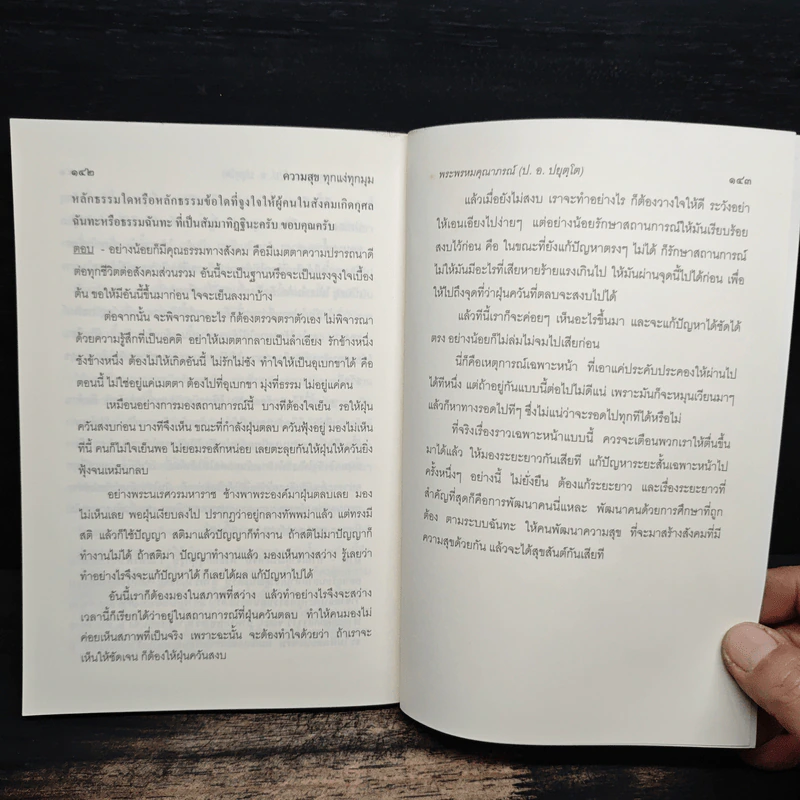 ๑๔๒
ความสุข ทุกแง่ทุกมุม
หลักธรรมใดหรือหลักธรรมข้อใดที่จูงใจให้ผู้คนในสังคมเกิดกุศล
ฉันทะหรือธรรมฉันทะ ที่เป็นสัมมาทิฏฐินะครับ ขอบคุณครับ
ตอบ - อย่างน้อยก็มีคุณธรรมทางสังคม คือมีเมตตาความปรารถนาดี
ต่อทุกชีวิตต่อสังคมส่วนรวม อันนี้จะเป็นฐานหรือจะเป็นแรงจูงใจเบื้อง
ต้น ขอให้มีอันนี้ขึ้นมาก่อน ใจจะเย็นลงมาบ้าง
ต่อจากนั้น จะพิจารณาอะไร ก็ต้องตรวจตราตัวเอง ไม่พิจารณา
ด้วยความรู้สึกที่เป็นอคติ อย่าให้เมตตากลายเป็นลำเอียง รักข้างหนึ่ง
ชังข้างหนึ่ง ต้องไม่ให้เกิดอันนี้ ไม่รักไม่ชัง ทำใจให้เป็นอุเบกขาได้ คือ
ตอนนี้ ไม่ใช่อยู่แค่เมตตา ต้องไปที่อุเบกขา มุ่งที่ธรรม ไม่อยู่แค่คน
เหมือนอย่างการมองสถานการณ์นี้ บางทีต้องใจเย็น รอให้ฝุ่น
ควันสงบก่อน บางทีจึงเห็น ขณะที่กำลังฝุ่นตลบ ควันฟุ้งอยู่ มองไม่เห็น
ทีนี้ คนก็ไม่ใจเย็นพอ ไม่ยอมรอสักหน่อย เลยตะลุยกันให้ฝุ่นให้ควันยิ่ง
ฟุ้งจนเหม็นกลบ
อย่างพระนเรศวรมหาราช ช้างพาพระองค์มาฝุ่นตลบเลย มอง
ไม่เห็นเลย พอฝุ่นเงียบลงไป ปรากฏว่าอยู่กลางทัพพม่าแล้ว แต่ทรงมี
สติ แล้วก็ใช้ปัญญา สติมาแล้วปัญญาก็ทำงาน ถ้าสติไม่มาปัญญาก็
ทำงานไม่ได้ ถ้าสติมา ปัญญาทำงานแล้ว มองเห็นทางสว่าง รู้เลยว่า
ทำอย่างไรจึงจะแก้ปัญหาได้ ก็เลยได้ผล แก้ปัญหาไปได้
อันนี้เราก็ต้องมองในสภาพที่สว่าง แล้วทำอย่างไรจึงจะสว่าง
เวลานี้ก็เรียกได้ว่าอยู่ในสถานการณ์ที่ฝุ่นควันตลบ ทำให้คนมองไม่
ค่อยเห็นสภาพที่เป็นจริง เพราะฉะนั้น จะต้องทำใจด้วยว่า ถ้าเราจะ
เห็นให้ชัดเจน ก็ต้องให้ฝุ่นควันสงบ
พระพรหมคุณาภรณ์ (ป. อ. ปยุตฺโต)
๑๔๓
แล้วเมื่อยังไม่สงบ เราจะทำอย่างไร ก็ต้องวางใจให้ดี ระวังอย่า
ให้เอนเอียงไปง่ายๆ แต่อย่างน้อยรักษาสถานการณ์ให้มันเรียบร้อย
สงบไว้ก่อน คือ ในขณะที่ยังแก้ปัญหาตรงๆ ไม่ได้ ก็รักษาสถานการณ์
ไม่ให้มันมีอะไรที่เสียหายร้ายแรงเกินไป ให้มันผ่านจุดนี้ไปได้ก่อน เพื่อ
ให้ไปถึงจุดที่ว่าฝุ่นควันที่ตลบจะสงบไปได้
แล้วทีนี้เราก็จะค่อยๆ เห็นอะไรขึ้นมา และจะแก้ปัญหาได้ชัดได้
ตรง อย่างน้อยก็ไม่ล่มไม่จมไปเสียก่อน
นี่ก็คือเหตุการณ์เฉพาะหน้า ที่เอาแค่ประคับประคองให้ผ่านไป
ได้ทีหนึ่ง แต่ถ้าอยู่กันแบบนี้ต่อไปไม่ดีแน่ เพราะมันก็จะหมุนเวียนมาๆ
แล้วก็หาทางรอดไปทีๆ ซึ่งไม่แน่ว่าจะรอดไปทุกทีได้หรือไม่
ที่จริงเรื่องราวเฉพาะหน้าแบบนี้ ควรจะเตือนพวกเราให้ตื่นขึ้น
มาได้แล้ว ให้มองระยะยาวกันเสียที แก้ปัญหาระยะสั้นเฉพาะหน้าไป
ครั้งหนึ่งๆ อย่างนี้ ไม่ยั่งยืน ต้องแก้ระยะยาว และเรื่องระยะยาวที่
สำคัญที่สุดก็คือการพัฒนาคนนี่แหละ พัฒนาคนด้วยการศึกษาที่ถูก
ต้อง ตามระบบฉันทะ ให้คนพัฒนาความสุข ที่จะมาสร้างสังคมที่มี
ความสุขด้วยกัน แล้วจะได้สุขสันต์กันเสียที